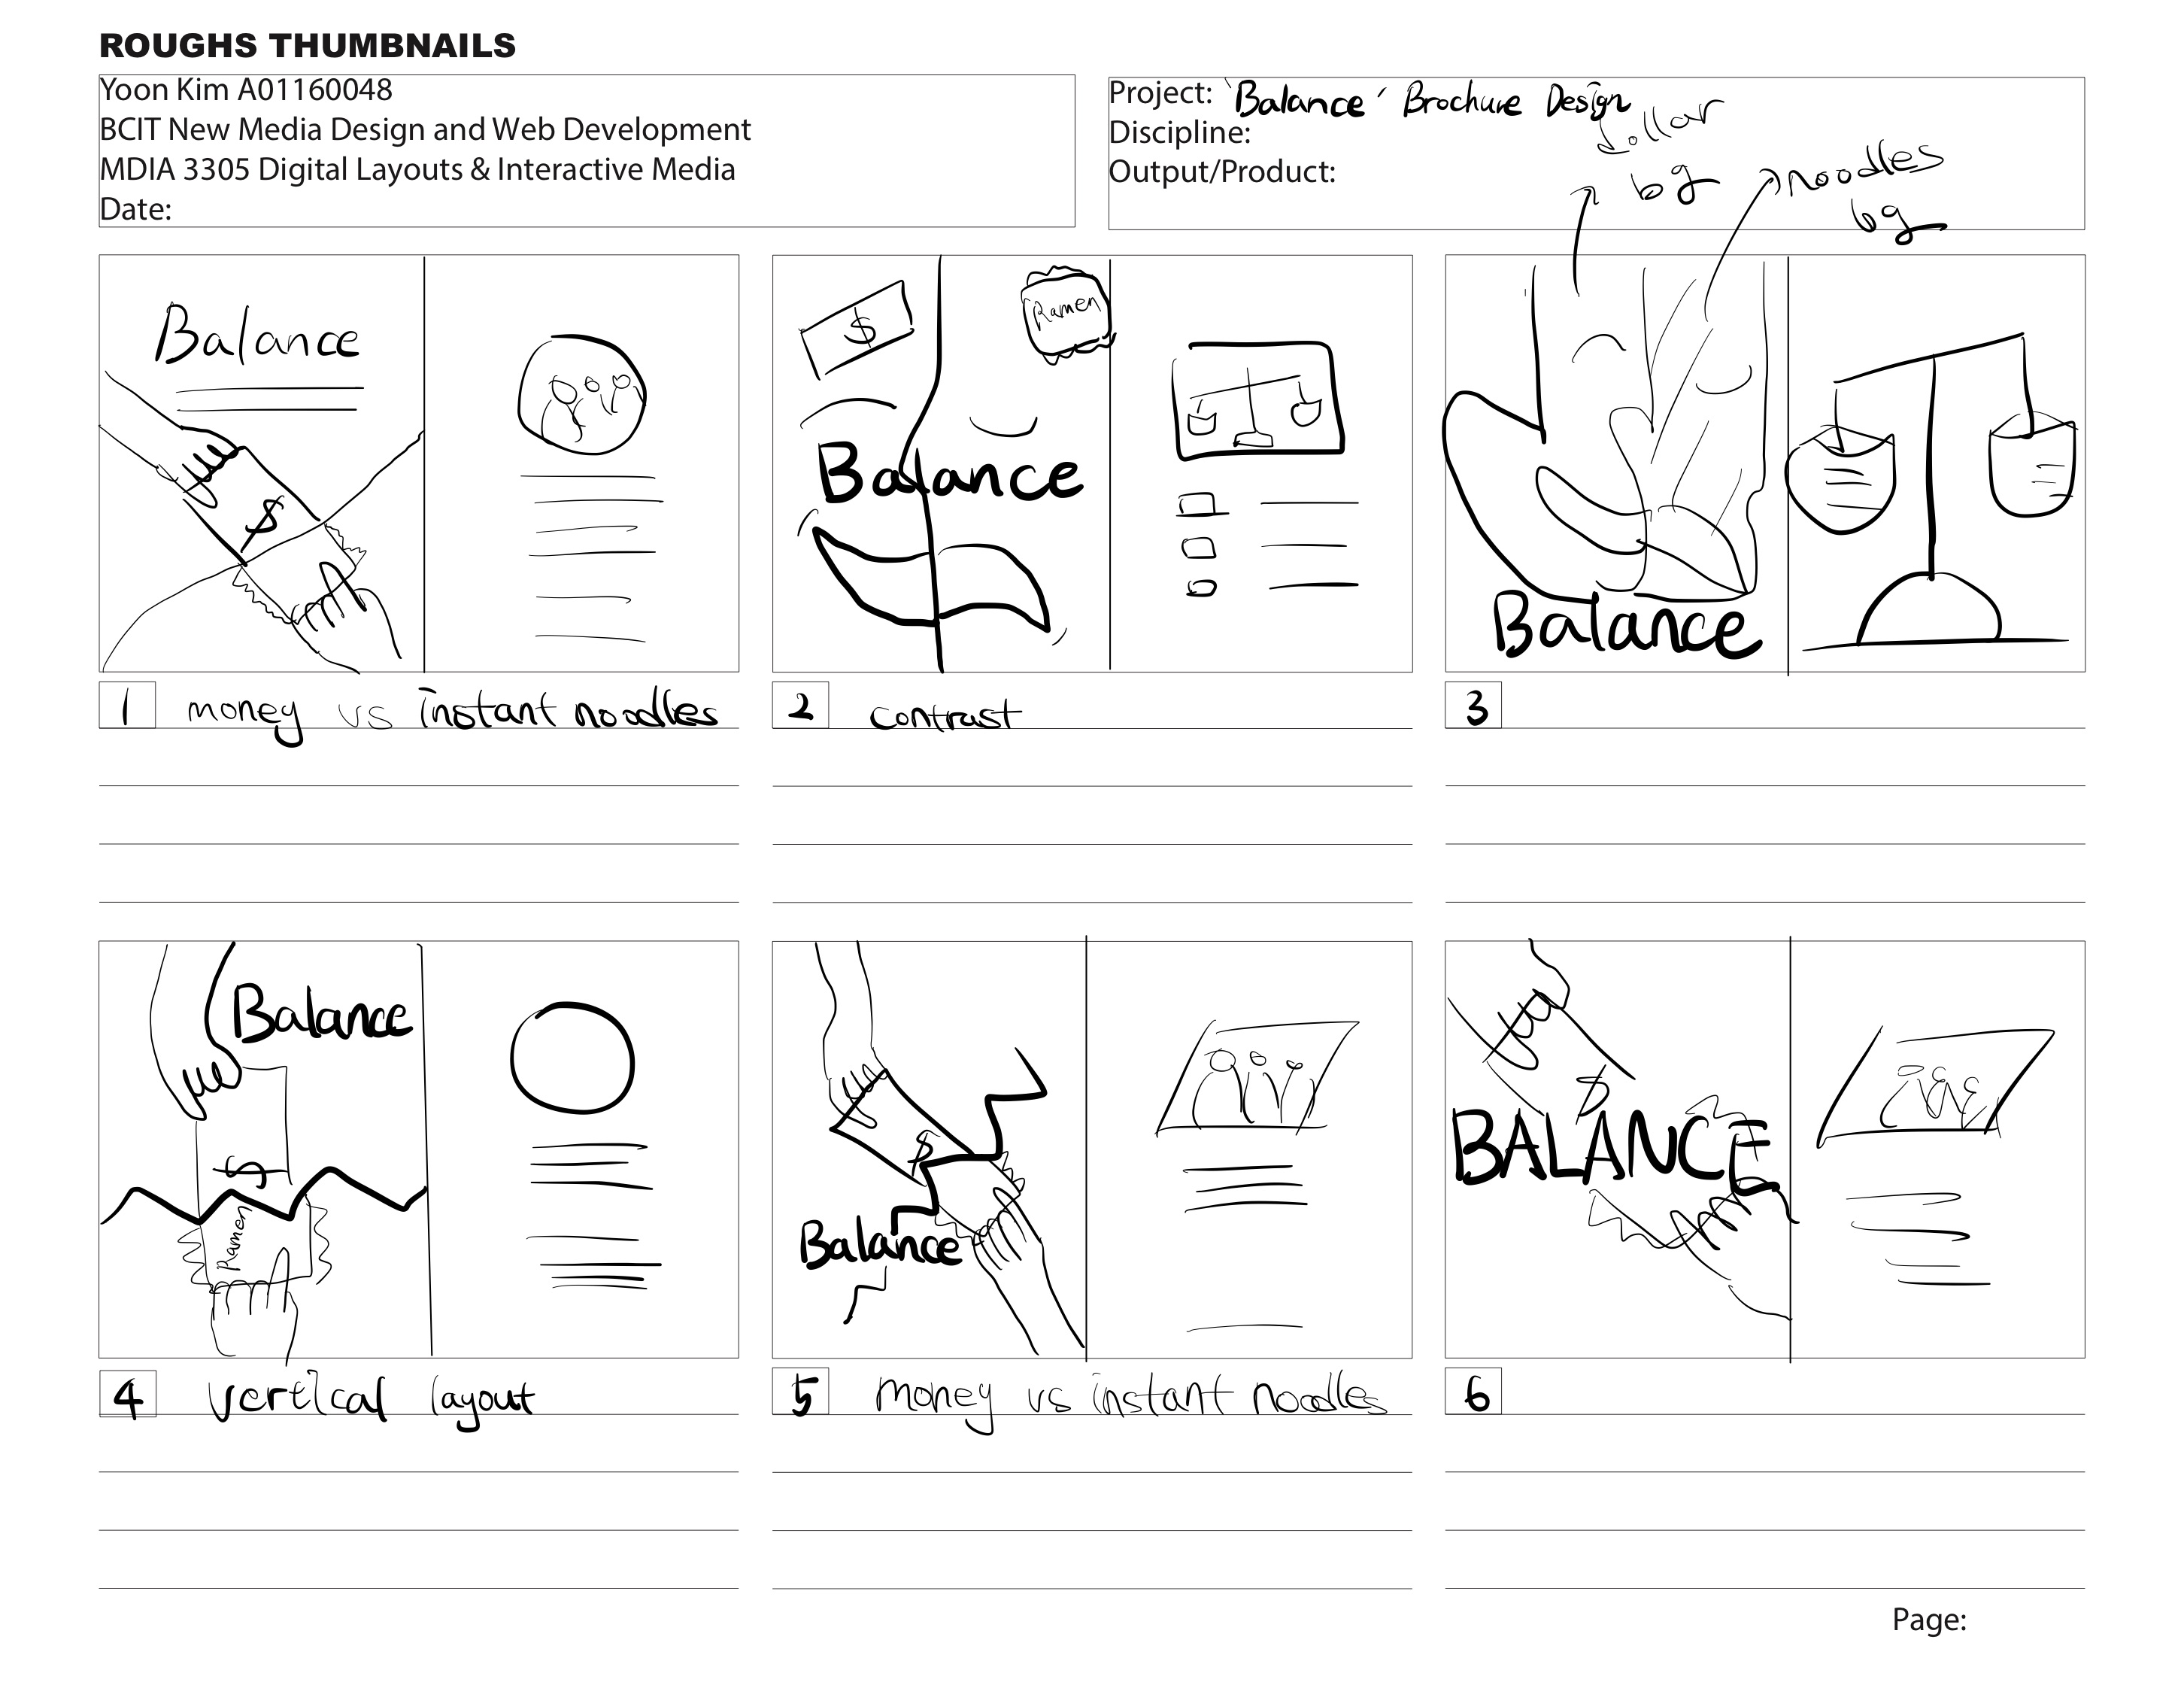 ROUGHS THUMBNAILS
Yoon Kim A01160048
BCIT New Media Design and Web Development
MDIA 3305 Digital Layouts & Interactive Media
Date:
Project: 'Balance' Brochure Design
Discipline:
Output/Product:
dollar
bg
noodles
bg
Balance
$
$
Ramen
Balance
Balance
1 money vs instant noodles
2 contrast
3
Balance
$
Ramen
$
Balance
$
BALANCE
4 vertical layout
5 money vs instant noodles
6
Page: